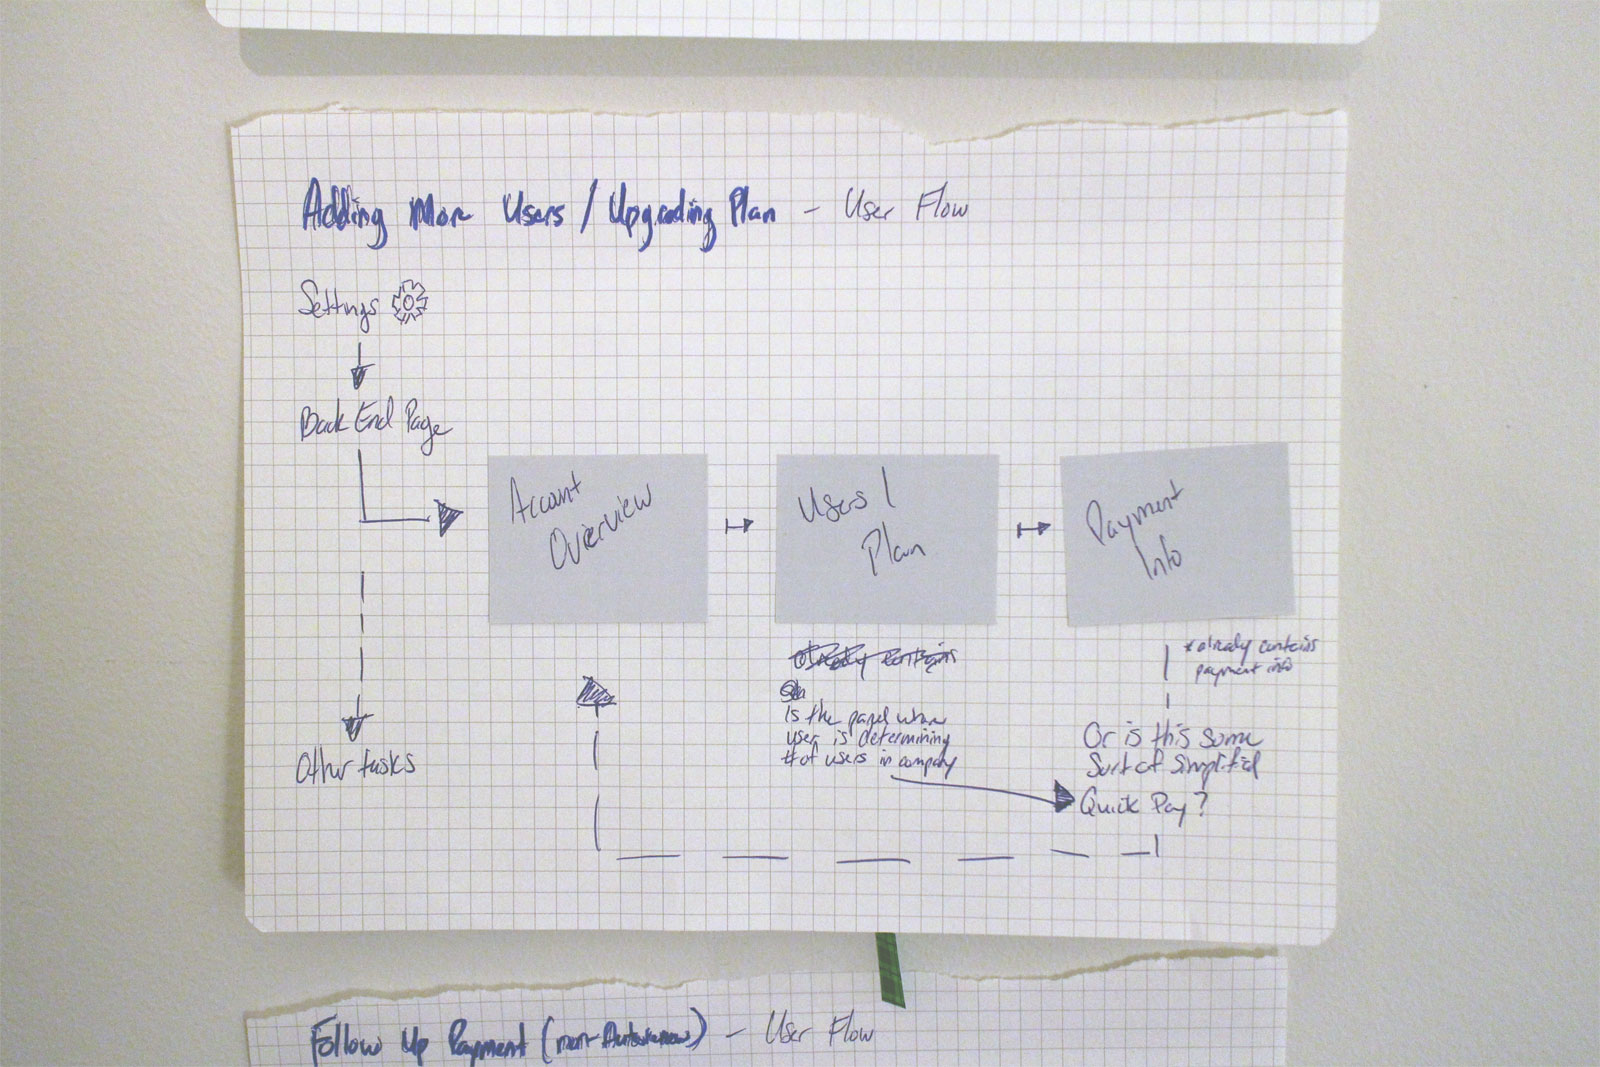 Adding More Users / Upgrading Plan - User Flow
Settings
Back End Page
Account
Overview
Users /
Plan
Payment
Info
Other tasks
already contains
Is the panel where
user is determining
# of users in company
* already contains
payment info
Or is this some
Sort of Simplified
Quick Pay?
Follow Up Payment (non-Autorenew) - User Flow